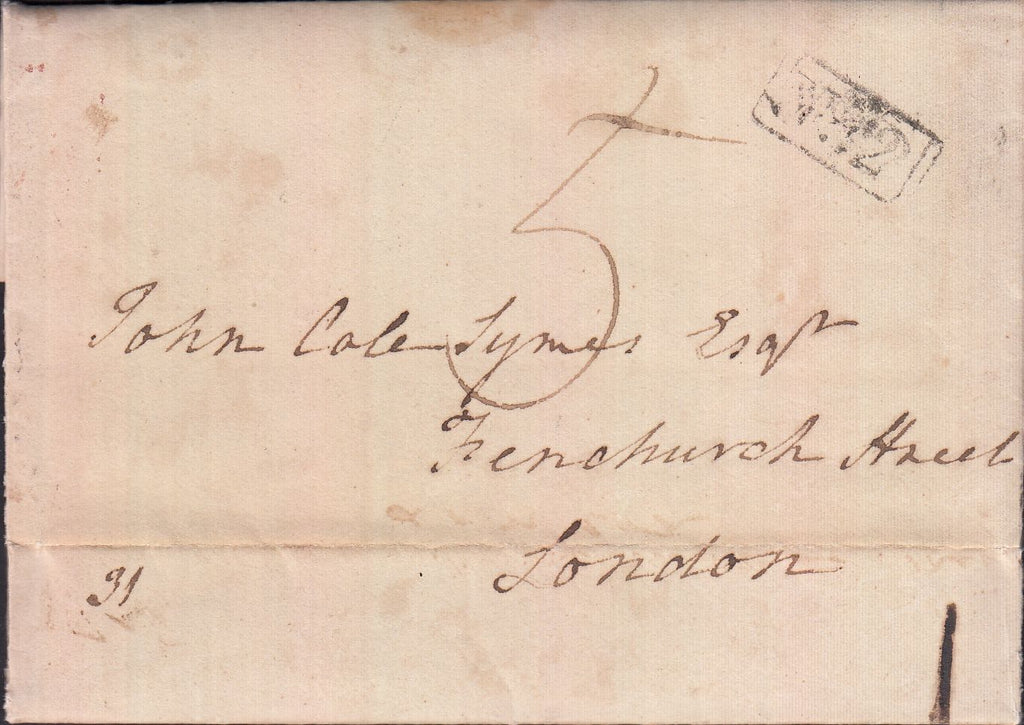 No. 2
5
John Cole Symes Esqr
Fenchurch Street
London
31
1